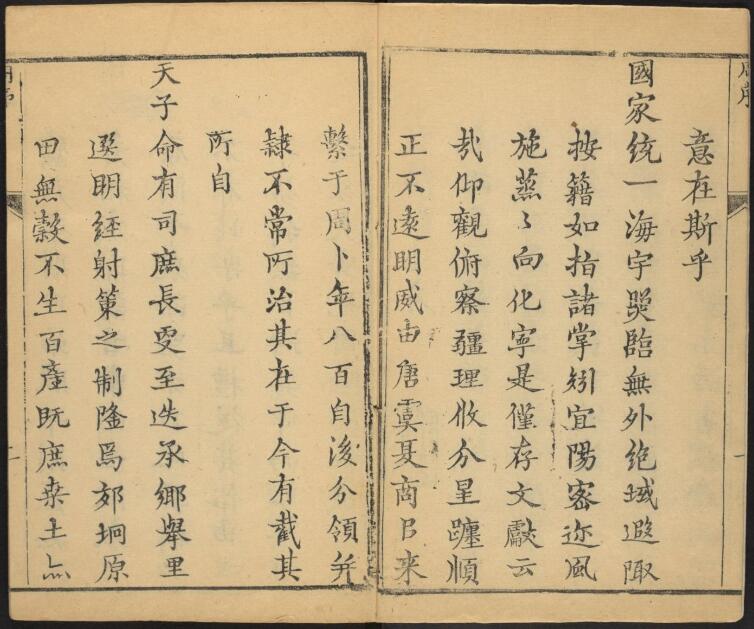 意在斯乎
國家統一海宇奰臨無外絶域遐陬
按籍如指諸掌矧宜陽密迩風
施蒸〻向化寜是僅存文獻云
㢤仰觀俯察疆理攸分星躔順
正不逺明威由唐虞夏商㠯来
繫于周卜年八百自後分領并
隸不常所治其在于今有截其
所自
天子命有司庶長㕛至迭承鄉舉里
選明經射策之制隆焉郊坰原
田無糓不生百產既庶桒土亦